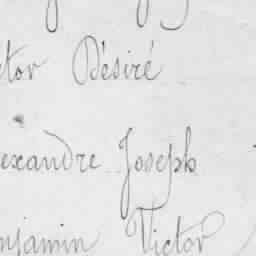 ctor Désiré
exandre Joseph
njamin Victor